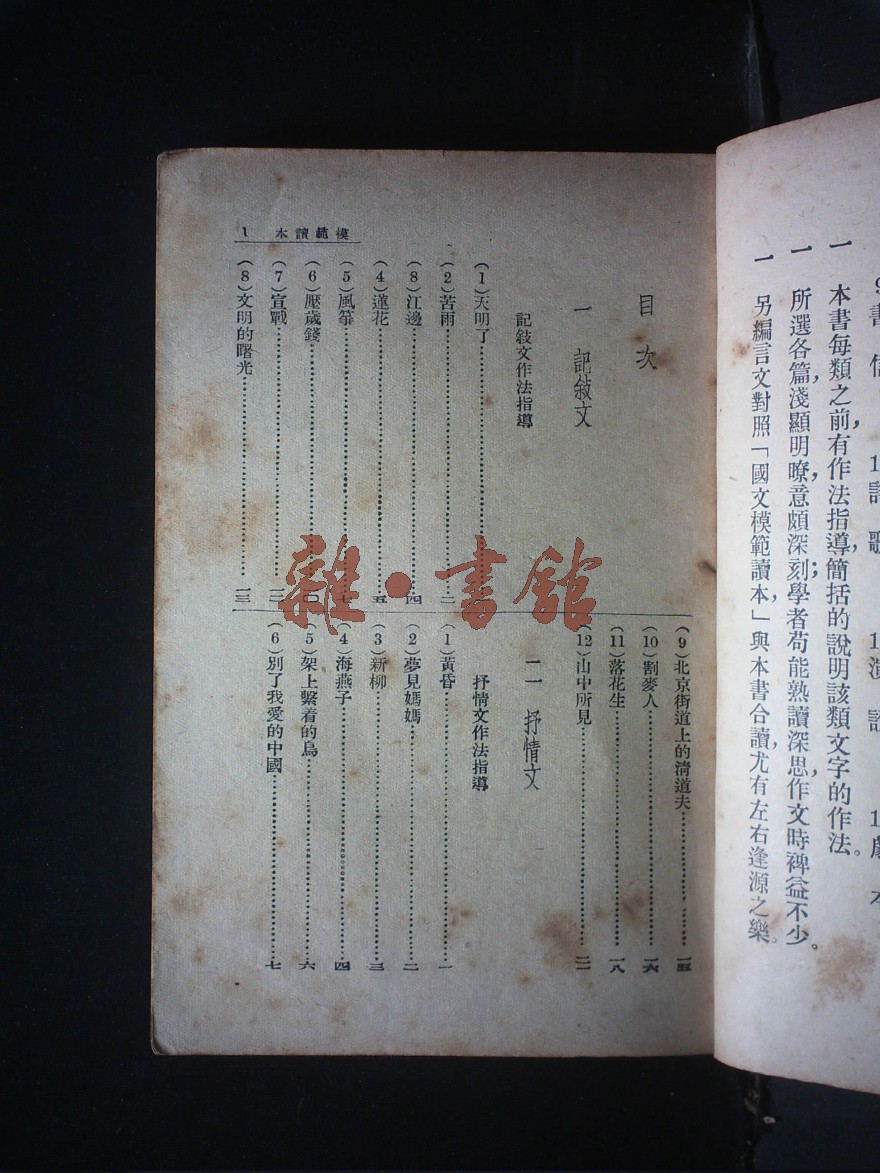 一 本書每類之前，有作法指導，簡括的說明該類文字的作法。
一 所選各篇，淺顯明瞭，意頗深刻；學者苟能熟讀深思，作文時裨益不少。
一 另編言文對照「國文模範讀本」與本書合讀，尤有左右逢源之樂。
模範讀本 1
目次
一 記敍文
記敍文作法指導
(1)天明了
(2)苦雨……二
(8)江邊……四
(4)蓮花……五
(5)風箏……七
(6)壓歲錢……一〇
(7)宣戰……一二
(8)文明的曙光……一三
(9)北京街道上的清道夫……一五
(10)割麥人……一六
(11)落花生……一八
(12)山中所見……二一
二 抒情文
抒情文作法指導
(1)黃昏……一
(2)夢見媽媽……二
(3)新柳……三
(4)海燕子……四
(5)架上繫着的鳥……六
(6)別了我愛的中國……七
雜·書館